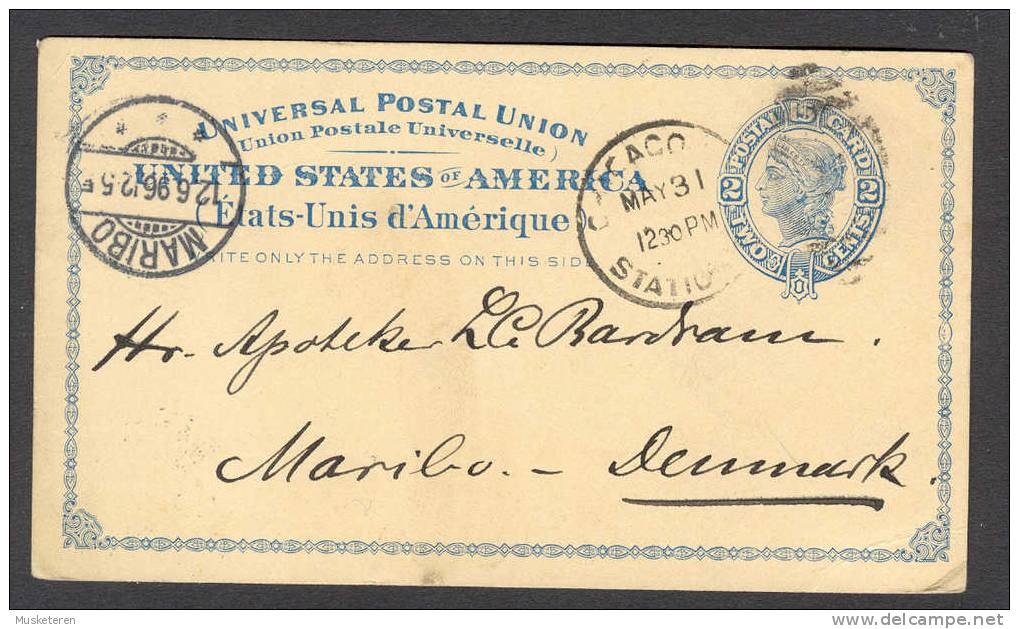 UNIVERSAL POSTAL UNION
(Union Postale Universelle)
UNITED STATES OF AMERICA
(États-Unis d'Amérique)
WRITE ONLY THE ADDRESS ON THIS SIDE
MARIBO
12.6.96 12.5 F
CHICAGO
MAY 31
1230 PM
STATIO
POSTAL CARD
2 2
TWO CENTS
Hr. Apoteker L C Bardram.
Maribo. - Denmark.
Musketeren
delcampe.net